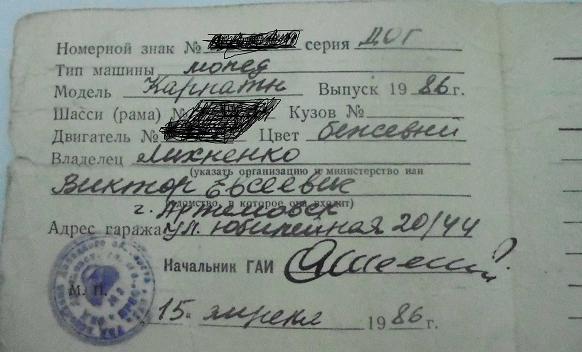 Номерной знак № серия ДОГ
Тип машины мопед
Модель Карпаты Выпуск 1986 г.
Шасси (рама) № Кузов №
Двигатель № Цвет бежевый
Владелец Лихненко
(указать организацию и министерство или
Виктор Евсеевич
ведомство, в которое она входит)
г. Артемовск
Адрес гаража ул. Юбилейная 20/44
Начальник ГАИ
М. П.
15. апреля 1986 г.